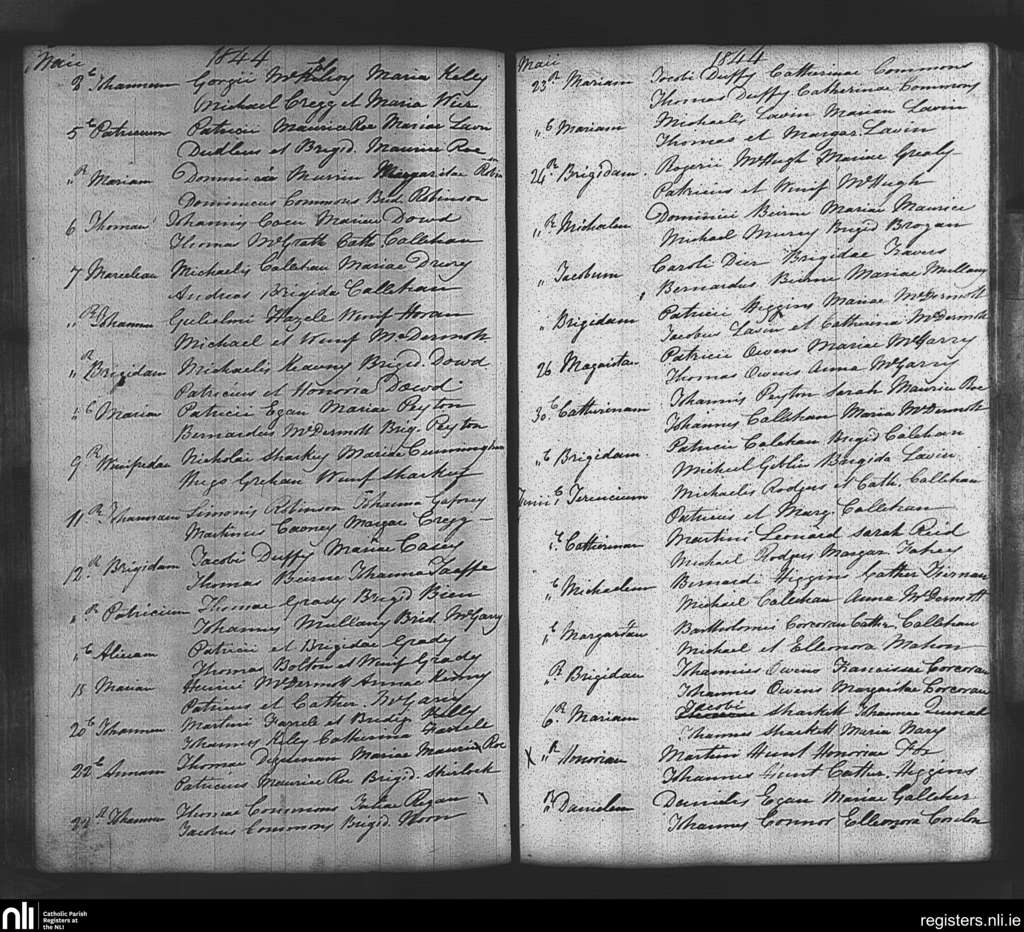 Maii 1844
2 C Johannem Georgii McKilroy Maria Kelly
Michael Cregg et Maria Wier
5 C Patricium Patricii Maurice Roe Mariae Lavn
Dudleus et Brigd. Maurice Roe
" R Mariam Dominici Murrin Margaritae Robin
Dominicus Commons Brid. Robinson
6 Thomam Johannis Coen Mariae Dowd
Thomas McGrath Cath Callehan
7 Marceleam Michaelis Callehan Mariae Drury
Andreas Brigida Callehan
" R Johannem Gulielmi Hazele Winif Horan
Michael et Winif McDermott
" R Brigidam Michaelis Keaveny Brigid. Dowd
Patricius et Honoria Dowd
" C Mariam Patricii Egan Mariae Peyton
Bernardus McDermott Brig. Peyton
9 R Winifredam Nicholai Sharkey Mariae Cunningham
Hugo Grehan Winif Sharkey
11 R Johannam Simonis Robinson Johanna Gafney
Martinus Cooney Margar Cregg
12 R Brigidam Jacobi Duffy Mariae Casey
Thomas Beirne Johanna Taaffe
" R Patricium Thomae Grady Brigid Bien
Johannes Mullany Brid. McGary
" C Aliciam Patricii et Brigidae Grady
Thomas Bolton et Winif Grady
15 Mariam Henrici McDermott Annae Kenny
Patricius et Cather. McGarry
20 C Johannem Martini Farrele et Bridig Kelly
Johannes Kelly Catherina Farrele
22 C Annam Thomae Mariae Maurice Roe
Patricius Maurice Roe Brigid. Shirlock
22 R Johannem Thomae Commons Juliae Regan
Jacobus Commons Brigid. Moon
Maii 1844
23 R Mariam Jacobi Duffy Catherinae Commons
Thomas Duffy Catherinae Commons
" C Mariam Michaelis Lavin Mariae Lavin
Thomas et Margar. Lavin
24 R Brigidam Rogerii McHugh Mariae Grealy
Patricius et Winif McHugh
" R Michaelem Dominici Beirne Mariae Maurice
Michael Murry Brigid Brogan
" Jacobum Caroli Dier Brigidae Travers
Bernardus Beirne Mariae Mullany
" Brigidam Patricii Higgins Mariae McDermott
Jacobus Lavin et Catherina McDermott
26 Magaritam Patricii Owens Mariae McGarry
Thomas Owens Anna McGarry
30 C Catherinam Johannis Peyton Sarah Maurice Roe
Johannes Callehan Maria McDermott
" C Brigidam Patricii Calehan Brigid Calehan
Micheel Giblin Brigida Lavin
Junii C Terencium Michaelis Rodgers et Cath. Callehan
Patricius et Mary. Callehan
" C Catherinae Martini Leonard Sarah Reid
Michael Rodgers Margar Fahey
" C Michaelem Bernardi Higgins Cather Tiernan
Michael Callehan Anna McDermott
" C Margaritam Bartholomei Corcoran Cathr. Callehan
Michael et Elleonora Mahon
" R Brigidam Johannis Owens Franciscae Corcoran
Johannes Owens Margaritae Corcoran
Jacobi
6 R Mariam Sharkett Johannae
Johannes Sharkett Maria Nary
X " R Honoriam Martini Hunt Honoriae Fox
Johannes Hunt Cather. Higgins
" R Danielem Danielis Egan Mariae Galleher
Johannes Connor Elleonora Conlon
nli Catholic Parish
Registers at
the NLI
registers.nli.ie